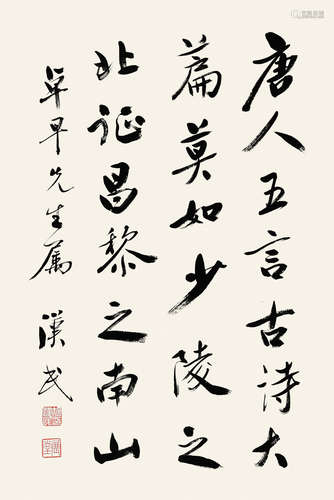 唐人五言古诗大
篇莫如少陵之
北征昌黎之南山
卓早先生属 汉民